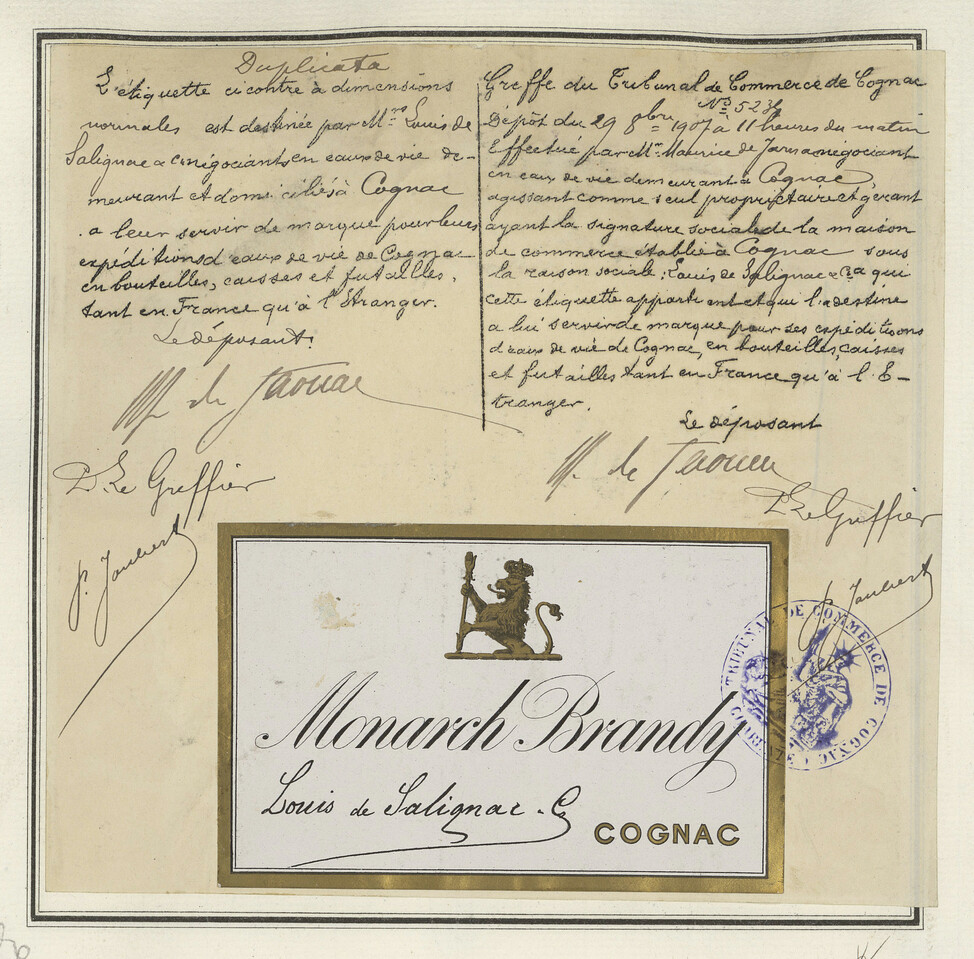 Duplicata
L'étiquette ci contre à dimensions
normales est destinée par Mrs Louis de
Salignac & Co négociants en eaux de vie de-
meurant et domiciliés à Cognac
a leur servir de marque pour leurs
expéditions d'eaux de vie de Cognac
en bouteilles, caisses et futailles,
tant en France qu'à l'Etranger.
Le déposant.
M. de
P. Le Greffier
P. Joubert
Greffe du Tribunal de Commerce de Cognac
No 523
Dépôt du 29 8bre 1907 à 11 heures du matin
Effectué par Mr Maurice de négociant
en eaux de vie demeurant à Cognac,
agissant comme seul propriétaire et gérant
ayant la signature sociale de la maison
de commerce établie à Cognac sous
la raison sociale: Louis de Salignac & Co a qui
cette étiquette appartient et qui la destine
a lui servir de marque pour ses expéditions
d'eaux de vie de Cognac, en bouteilles, caisses
et futailles tant en France qu'à l'E-
tranger.
Le déposant
M. de
P. Le Greffier
P. Joubert
TRIBUNAL DE COMMERCE DE COGNAC
Monarch Brandy
Louis de Salignac & Co
COGNAC